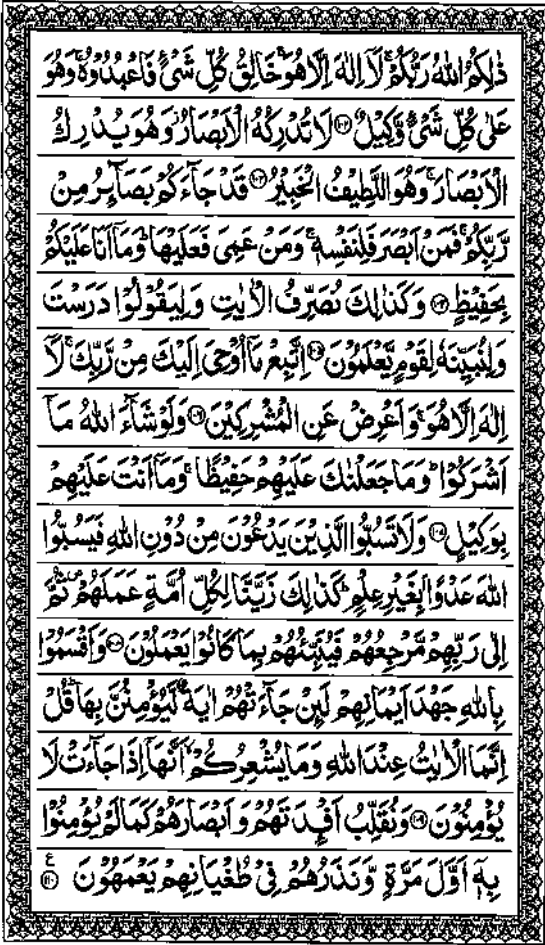 ذٰلِكُمُ اللّٰهُ رَبُّكُمْ ۚ لَآ اِلٰهَ اِلَّا هُوَ ۚ خَالِقُ كُلِّ شَیْءٍ فَاعْبُدُوْهُ ۚ وَهُوَ
عَلٰی كُلِّ شَیْءٍ وَّكِیْلٌ ﴿۱۰۲﴾ لَا تُدْرِكُهُ الْاَبْصَارُ ؗ وَهُوَ یُدْرِكُ
الْاَبْصَارَ ۚ وَهُوَ اللَّطِیْفُ الْخَبِیْرُ ﴿۱۰۳﴾ قَدْ جَآءَكُمْ بَصَآىِٕرُ مِنْ
رَّبِّكُمْ ۚ فَمَنْ اَبْصَرَ فَلِنَفْسِهٖ ۚ وَمَنْ عَمِیَ فَعَلَیْهَا ؕ وَمَاۤ اَنَا عَلَیْكُمْ
بِحَفِیْظٍ ﴿۱۰۴﴾ وَكَذٰلِكَ نُصَرِّفُ الْاٰیٰتِ وَلِیَقُوْلُوْا دَرَسْتَ
وَلِنُبَیِّنَهٗ لِقَوْمٍ یَّعْلَمُوْنَ ﴿۱۰۵﴾ اِتَّبِعْ مَاۤ اُوْحِیَ اِلَیْكَ مِنْ رَّبِّكَ ۚ لَاۤ
اِلٰهَ اِلَّا هُوَ ۚ وَاَعْرِضْ عَنِ الْمُشْرِكِیْنَ ﴿۱۰۶﴾ وَلَوْ شَآءَ اللّٰهُ مَاۤ
اَشْرَكُوْا ؕ وَمَا جَعَلْنٰكَ عَلَیْهِمْ حَفِیْظًا ۚ وَمَاۤ اَنْتَ عَلَیْهِمْ
بِوَكِیْلٍ ﴿۱۰۷﴾ وَلَا تَسُبُّوا الَّذِیْنَ یَدْعُوْنَ مِنْ دُوْنِ اللّٰهِ فَیَسُبُّوا
اللّٰهَ عَدْوًۢا بِغَیْرِ عِلْمٍ ؕ كَذٰلِكَ زَیَّنَّا لِكُلِّ اُمَّةٍ عَمَلَهُمْ ۪ ثُمَّ
اِلٰی رَبِّهِمْ مَّرْجِعُهُمْ فَیُنَبِّئُهُمْ بِمَا كَانُوْا یَعْمَلُوْنَ ﴿۱۰۸﴾ وَاَقْسَمُوْا
بِاللّٰهِ جَهْدَ اَیْمَانِهِمْ لَىِٕنْ جَآءَتْهُمْ اٰیَةٌ لَّیُؤْمِنُنَّ بِهَا ؕ قُلْ
اِنَّمَا الْاٰیٰتُ عِنْدَ اللّٰهِ وَمَا یُشْعِرُكُمْ ۙ اَنَّهَاۤ اِذَا جَآءَتْ لَا
یُؤْمِنُوْنَ ﴿۱۰۹﴾ وَنُقَلِّبُ اَفْـِٕدَتَهُمْ وَاَبْصَارَهُمْ كَمَا لَمْ یُؤْمِنُوْا
بِهٖۤ اَوَّلَ مَرَّةٍ وَّنَذَرُهُمْ فِیْ طُغْیَانِهِمْ یَعْمَهُوْنَ ﴿۱۱۰﴾ ع